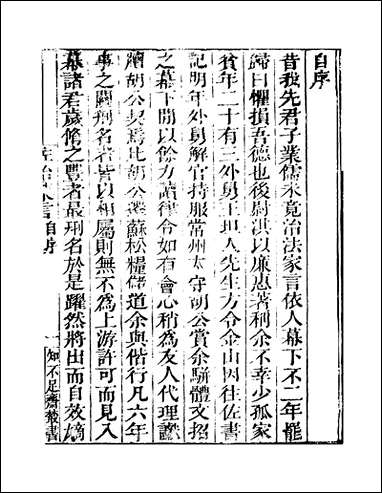 自序
昔我先君子業儒未竟治法家言依人幕下不二年罷
歸曰懼損吾德也後尉淇以廉惠著稱余不幸少孤家
貧年二十有三外舅王坦人先生方令金山因往佐書
記明年外舅解官持服常州太守胡公賞余駢體文招
之幕下閒以餘力讀律令如有會心稍爲友人代理讞
牘胡公契焉比胡公遷蘇松糧儲道余與偕行凡六年
事之關刑名者皆以相屬則無不爲上游許可而見入
幕諸君歲脩之豐者最刑名於是躍然將出而自效嫡
佐治藥言自序
一
知不足齋叢書